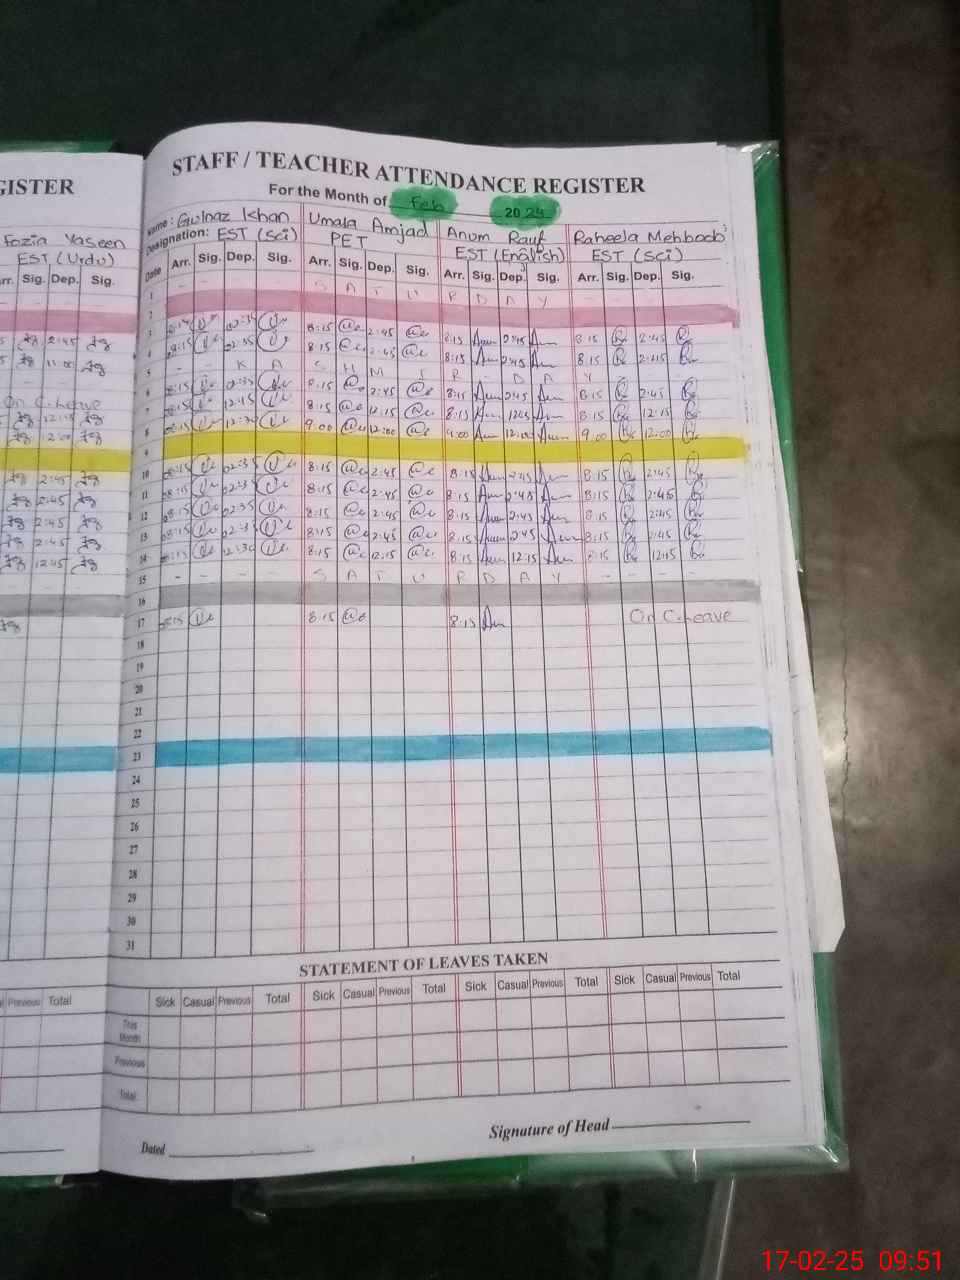 GISTER
Fozia Yaseen
EST (Urdu)
rr. Sig. Dep. Sig.
2:45
11:00
On C.Leave
12:15
12:00
2:45
2:45
2:45
2:45
12:45
Previous Total
STAFF / TEACHER ATTENDANCE REGISTER
For the Month of Feb 20
Name: Gulnaz Khan Umala Amjad Anum Rauf Raheela Mehboob
Designation: EST (Sci) PET EST (English) EST (Sci)
Date Arr. Sig. Dep. Sig. Arr. Sig. Dep. Sig. Arr. Sig. Dep. Sig. Arr. Sig. Dep. Sig.
1 - - S A T U R D A Y - - - -
2
3 8:15 2:45 8:15 2:45 8:15 2:45
4 8:15 02:35 8:15 2:45 8:15 2:45 8:15 2:45
5 - - K A S H M I R - D A Y - - -
6 08:15 02:35 8:15 2:45 8:15 2:45 8:15 2:45
7 08:15 12:15 8:15 12:15 8:15 1205 8:15 12:15
8 08:15 12:30 9:00 12:00 9:00 12:00 9:00 12:00
9
10 08:15 02:35 8:15 2:45 8:15 2:45 8:15 2:45
11 08:15 02:35 8:15 2:45 8:15 2:45 8:15 2:45
12 08:15 02:35 8:15 2:45 8:15 2:45 8:15 2:45
13 08:15 02:35 8:15 2:45 8:15 2:45 8:15 2:45
14 08:15 12:30 8:15 12:15 8:15 12:15 8:15 12:15
15 - - - - S A T U R D A Y - - - -
16
17 08:15 8:15 8:15 On C.Leave
18
19
20
21
22
23
24
25
26
27
28
29
30
31
STATEMENT OF LEAVES TAKEN
Sick Casual Previous Total Sick Casual Previous Total Sick Casual Previous Total Sick Casual Previous Total
This Month
Previous
Total
Dated
Signature of Head
17-02-25 09:51